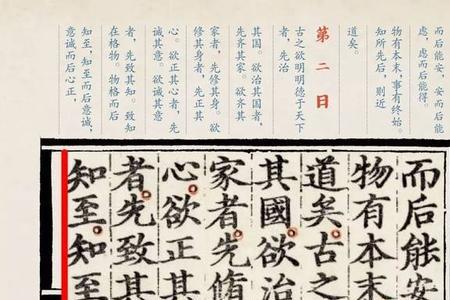 而后能安，安而后能
虑，虑而后能得。
物有本末，事有终始。
知所先后，则近
道矣。
第二日
古之欲明明德于天下
者，先治
其国。欲治其国者，
先齐其家。欲齐其
家者，先修其身。欲
修其身者，先正其
心。欲正其心者，先
诚其意。欲诚其意
者，先致其知。致知
在格物。物格而后
知至，知至而后意诚，
意诚而后心正，
而后能安
物有本末
道矣古之
其國欲治
家者先脩
心欲正其
者先致其
知至知至